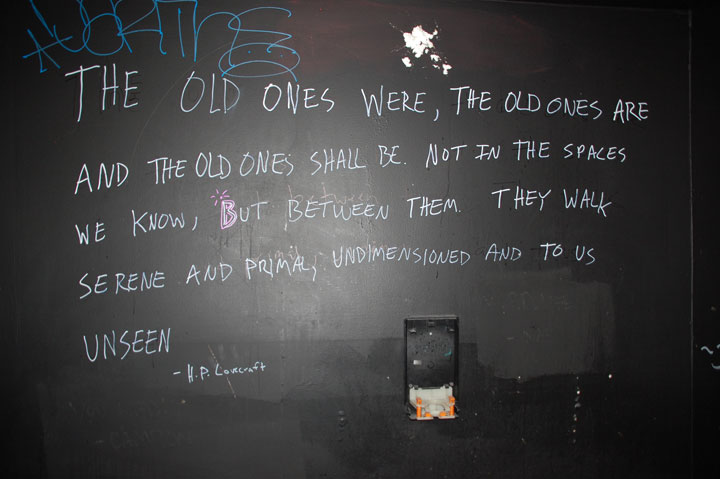 THE OLD ONES WERE, THE OLD ONES ARE
AND THE OLD ONES SHALL BE. NOT IN THE SPACES
WE KNOW, BUT BETWEEN THEM. THEY WALK
SERENE AND PRIMAL, UNDIMENSIONED AND TO US
UNSEEN
- H.P. Lovecraft